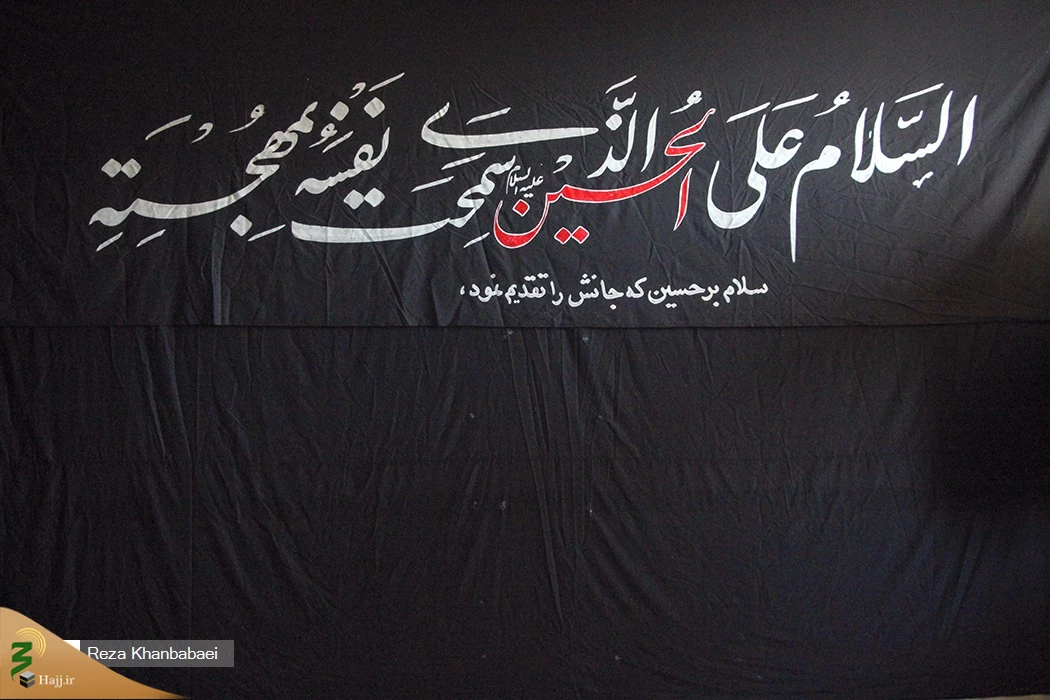 السَّلامُ عَلَی الحُسین علیه السلام الَّذی سَمِحَت نَفسُهُ بِمُهجَتِهِ
سلام بر حسین که جانش را تقدیم نمود،
Reza Khanbabaei
Hajj.ir